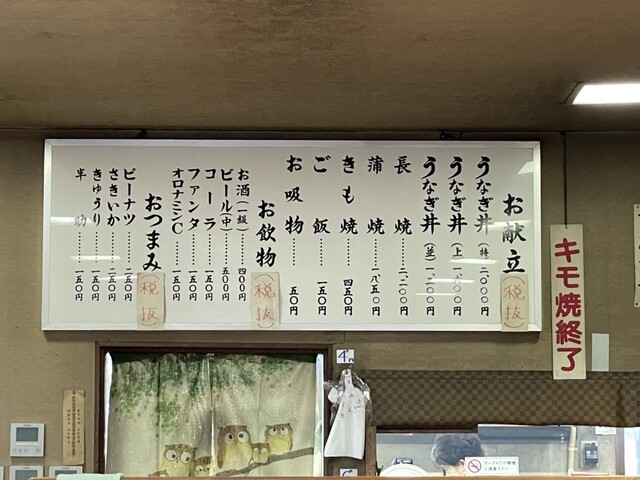 お献立
(税抜)
うなぎ丼(特)二、〇〇〇円
うなぎ丼(上)一、六〇〇円
うなぎ丼(並)一、二〇〇円
長焼……二、二〇〇円
蒲焼……一、八五〇円
きも焼……四五〇円
ご飯……一五〇円
お吸物……五〇円
お飲物
(税抜)
お酒(一級)……四〇〇円
ビール(中)……五〇〇円
コーラ……一五〇円
ファンタ……一五〇円
オロナミンC……一五〇円
おつまみ
(税抜)
ピーナツ……二五〇円
さきいか……二五〇円
きゅうり……一五〇円
半助……一五〇円
キモ焼終了